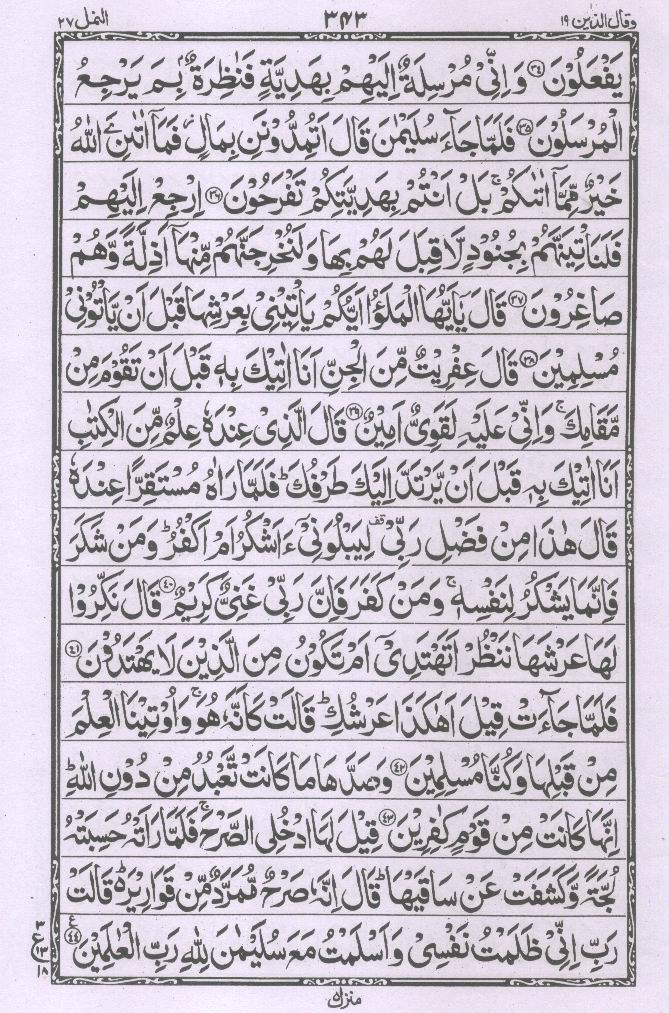 وقال الذين ١٩ ٣٤٣ النمل ٢٧
يَفْعَلُوْنَ ﴿٣٤﴾ وَاِنِّىْ مُرْسِلَةٌ اِلَيْهِمْ بِهَدِيَّةٍ فَنٰظِرَةٌۢ بِمَ يَرْجِعُ
الْمُرْسَلُوْنَ ﴿٣٥﴾ فَلَمَّا جَآءَ سُلَيْمٰنَ قَالَ اَتُمِدُّوْنَنِ بِمَالٍ فَمَآ اٰتٰىنِۦَ اللّٰهُ
خَيْرٌ مِّمَّآ اٰتٰىكُمْ ۚ بَلْ اَنْتُمْ بِهَدِيَّتِكُمْ تَفْرَحُوْنَ ﴿٣٦﴾ اِرْجِعْ اِلَيْهِمْ
فَلَنَاْتِيَنَّهُمْ بِجُنُوْدٍ لَّا قِبَلَ لَهُمْ بِهَا وَلَنُخْرِجَنَّهُمْ مِّنْهَآ اَذِلَّةً وَّهُمْ
صَاغِرُوْنَ ﴿٣٧﴾ قَالَ يٰٓاَيُّهَا الْمَلَؤُا اَيُّكُمْ يَاْتِيْنِىْ بِعَرْشِهَا قَبْلَ اَنْ يَّاْتُوْنِىْ
مُسْلِمِيْنَ ﴿٣٨﴾ قَالَ عِفْرِيْتٌ مِّنَ الْجِنِّ اَنَا اٰتِيْكَ بِهٖ قَبْلَ اَنْ تَقُوْمَ مِنْ
مَّقَامِكَ ۚ وَاِنِّىْ عَلَيْهِ لَقَوِىٌّ اَمِيْنٌ ﴿٣٩﴾ قَالَ الَّذِىْ عِنْدَهٗ عِلْمٌ مِّنَ الْكِتٰبِ
اَنَا اٰتِيْكَ بِهٖ قَبْلَ اَنْ يَّرْتَدَّ اِلَيْكَ طَرْفُكَ ؕ فَلَمَّا رَاٰهُ مُسْتَقِرًّا عِنْدَهٗ
قَالَ هٰذَا مِنْ فَضْلِ رَبِّىْ ۗ لِيَبْلُوَنِىْٓ ءَاَشْكُرُ اَمْ اَكْفُرُ ؕ وَمَنْ شَكَرَ
فَاِنَّمَا يَشْكُرُ لِنَفْسِهٖ ۚ وَمَنْ كَفَرَ فَاِنَّ رَبِّىْ غَنِىٌّ كَرِيْمٌ ﴿٤٠﴾ قَالَ نَكِّرُوْا
لَهَا عَرْشَهَا نَنْظُرْ اَتَهْتَدِىْٓ اَمْ تَكُوْنُ مِنَ الَّذِيْنَ لَا يَهْتَدُوْنَ ﴿٤١﴾
فَلَمَّا جَآءَتْ قِيْلَ اَهٰكَذَا عَرْشُكِ ؕ قَالَتْ كَاَنَّهٗ هُوَ ۚ وَاُوْتِيْنَا الْعِلْمَ
مِنْ قَبْلِهَا وَكُنَّا مُسْلِمِيْنَ ﴿٤٢﴾ وَصَدَّهَا مَا كَانَتْ تَّعْبُدُ مِنْ دُوْنِ اللّٰهِ ؕ
اِنَّهَا كَانَتْ مِنْ قَوْمٍ كٰفِرِيْنَ ﴿٤٣﴾ قِيْلَ لَهَا ادْخُلِى الصَّرْحَ ۚ فَلَمَّا رَاَتْهُ حَسِبَتْهُ
لُجَّةً وَّكَشَفَتْ عَنْ سَاقَيْهَا ؕ قَالَ اِنَّهٗ صَرْحٌ مُّمَرَّدٌ مِّنْ قَوَارِيْرَ ؕ قَالَتْ
رَبِّ اِنِّىْ ظَلَمْتُ نَفْسِىْ وَاَسْلَمْتُ مَعَ سُلَيْمٰنَ لِلّٰهِ رَبِّ الْعٰلَمِيْنَ ﴿٤٤﴾
٣
ع
١٣
١٨
منزل ٥